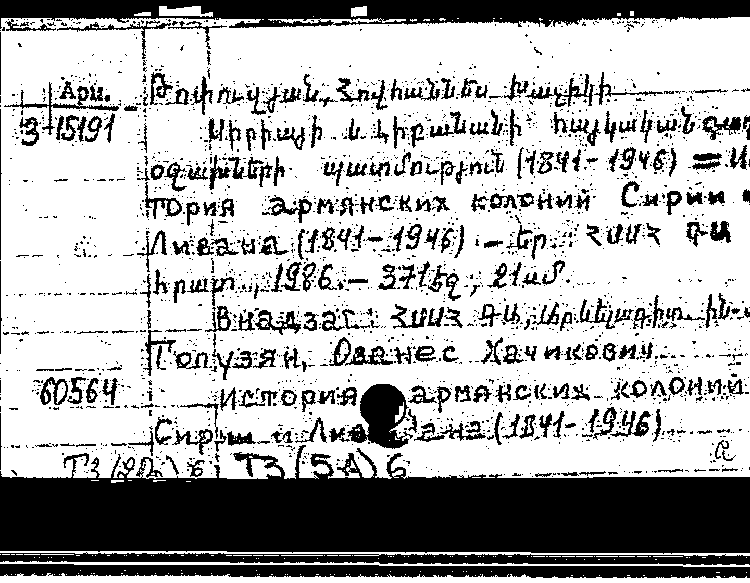 Арм. Թոփուզյան, Հովհաննես Խաչիկի
3-15191 Սիրիայի և Լիբանանի հայկական գաղ
օջախների պատմություն (1841-1946) = Ис
тория армянских колоний Сирии и
Ливана (1841-1946). - Եր.: ՀՍՍՀ ԳԱ
հրատ., 1986. - 371 էջ; 21 սմ.
В надзаг.: ՀՍՍՀ ԳԱ, Արևելագիտ. ին-
Топузян, Ованес Хачикович
60564 История армянских колоний
Сирии и Ливана (1841-1946)
Т3(5А)6